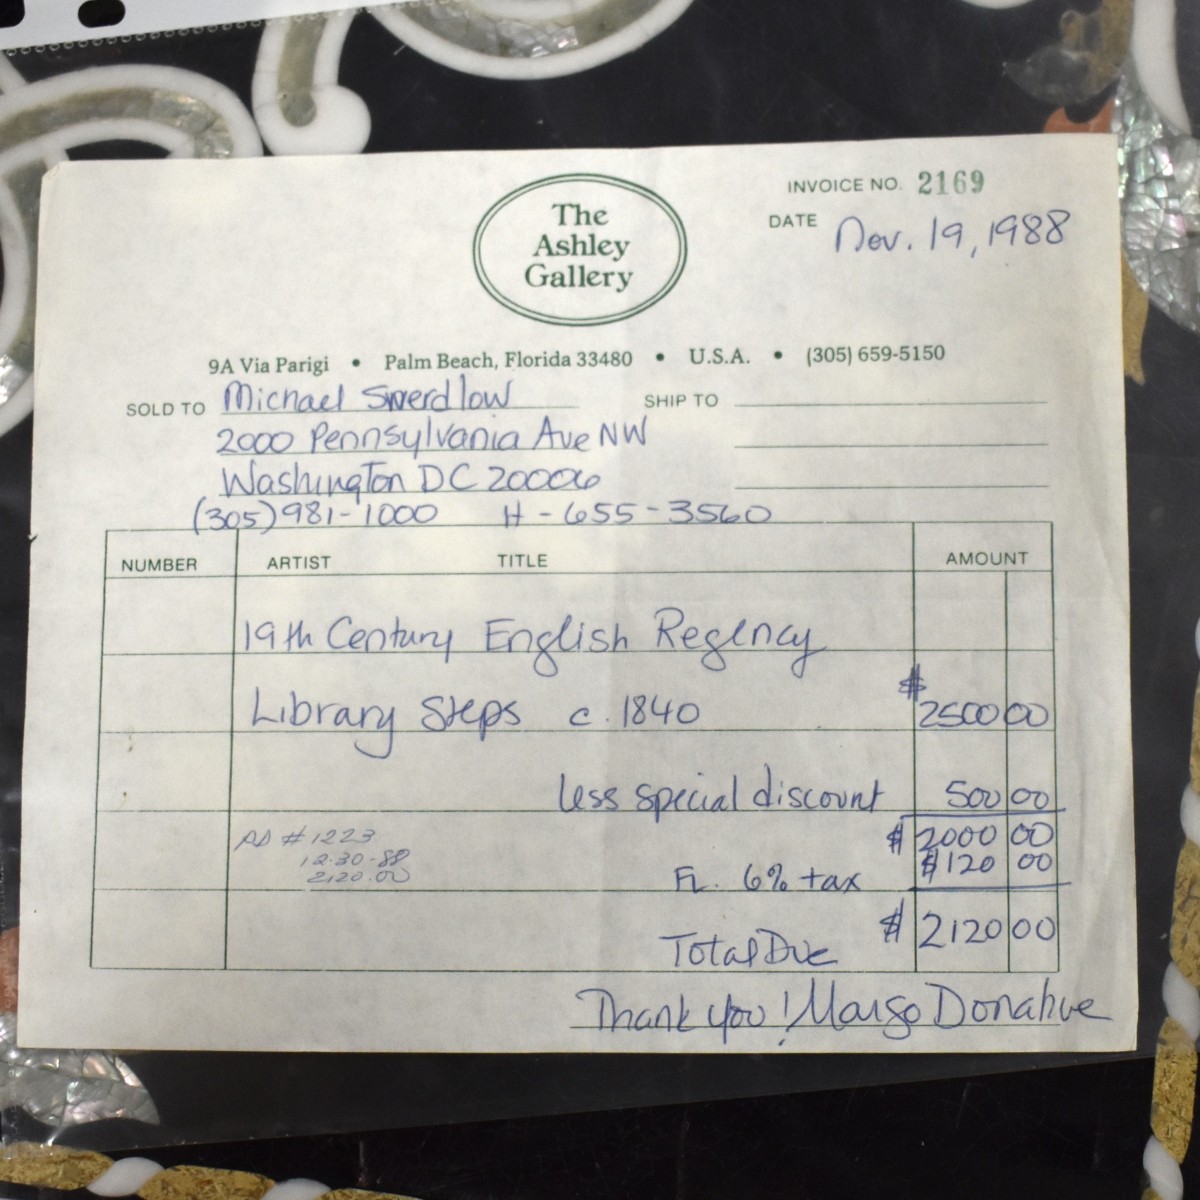 The
Ashley
Gallery
INVOICE NO. 2169
DATE Nov. 19, 1988
9A Via Parigi • Palm Beach, Florida 33480 • U.S.A. • (305) 659-5150
SOLD TO Michael Swerdlow
SHIP TO
2000 Pennsylvania Ave NW
Washington DC 20006
(305) 981-1000 H - 655-3560
NUMBER ARTIST TITLE AMOUNT
19th Century English Regency
Library Steps c. 1840 $2500 00
less special discount 500 00
$2000 00
PD #1223
12-30-88
2120.00
FL. 6% tax $120 00
Total Due $2120 00
Thank you! Margo Donahue